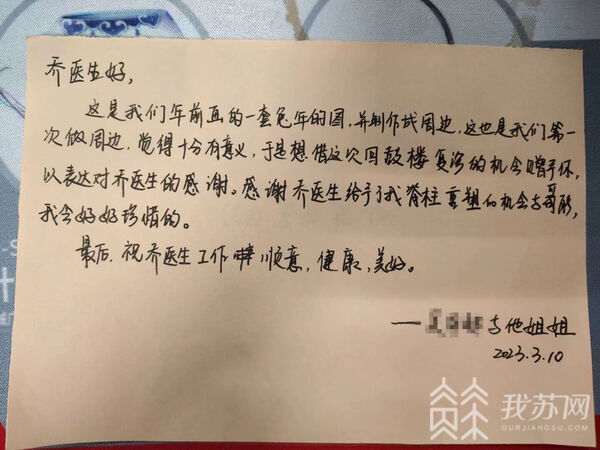 乔医生好,
这是我们年前画的一套兔年的图,并制作成周边,这也是我们第一
次做周边,觉得十分有意义,于是想借这次回鼓楼复诊的机会赠予你,
以表达对乔医生的感谢。感谢乔医生给予了我脊柱重塑的机会与
我会好好珍惜的。
最后,祝乔医生工作顺意,健康,美好。
一 与他姐姐
2023.3.10
我苏网
OURJIANGSU.COM